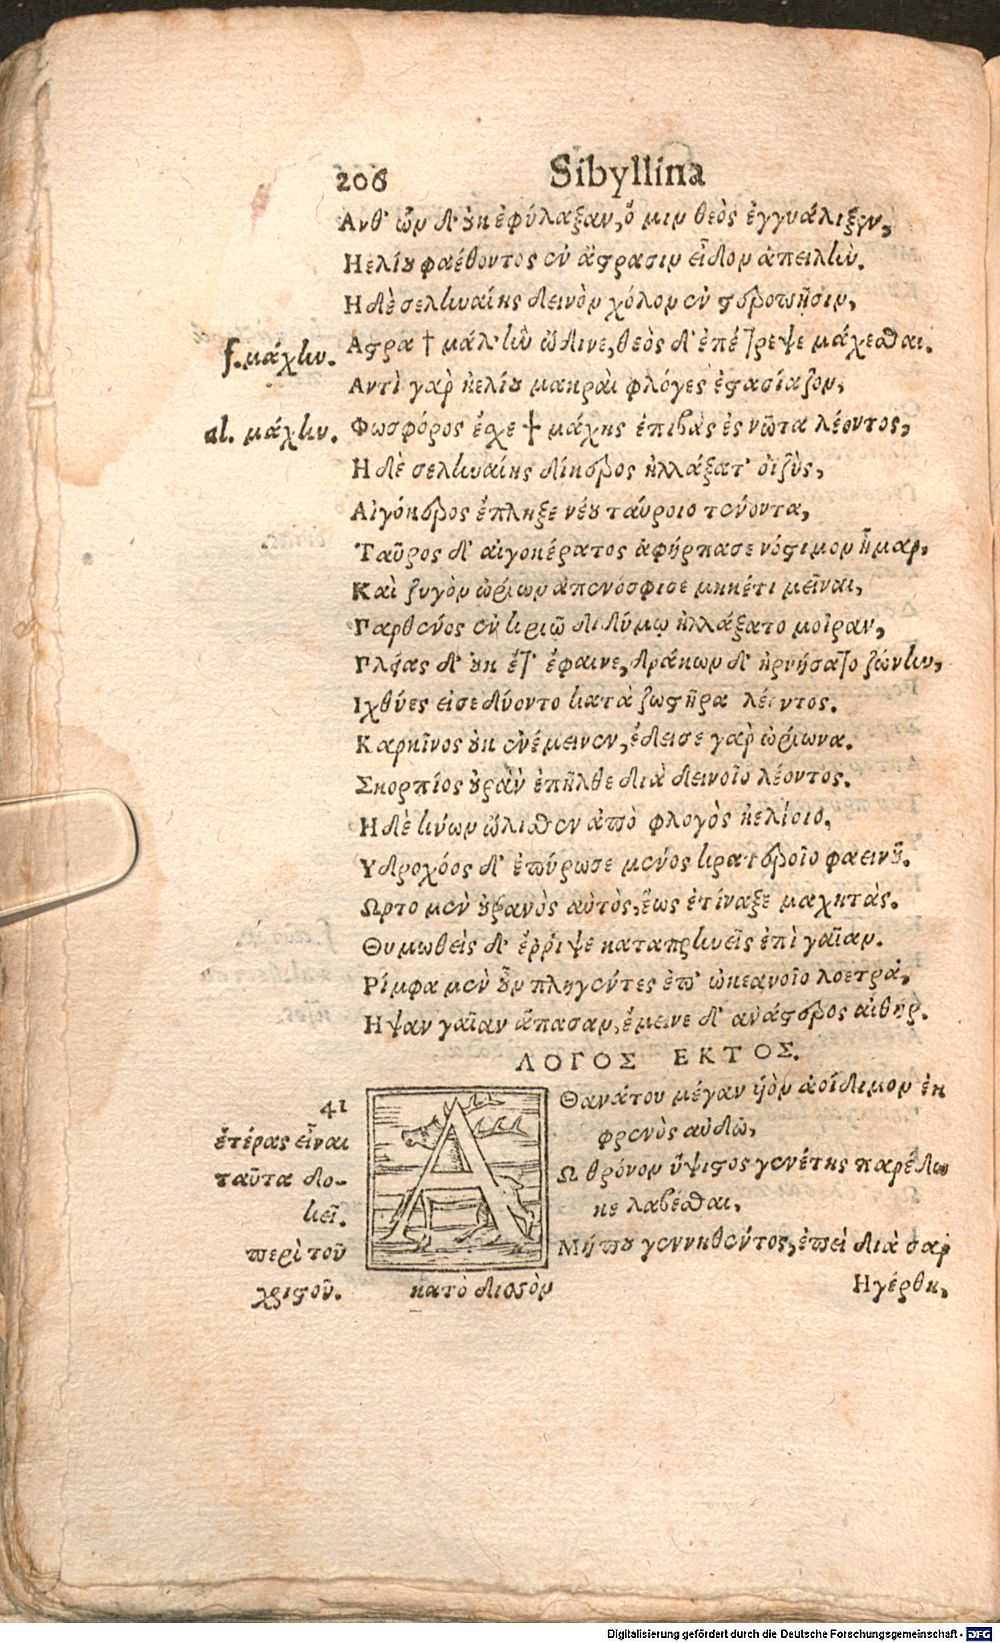 206 Sibyllina
Ανθ' ὧν δ' οὐκ ἐφύλαξαν, ὅ μιν θεὸς ἐγγυάλιξεν,
Ηελίου φαέθοντος ἐν ἄστρασιν εἶδον ἀπειλὴν.
Η δὲ σεληναίης δεινὸν χόλον ἐν στεροπῇσιν,
f. μάχην. Αστρα † μάλ' ὴν ὤδινε, θεὸς δ' ἐπέτρεψε μάχεσθαι.
Αντὶ γὰρ ἠελίου μακραὶ φλόγες ἐστασίαζον,
al. μάχην. Φωσφόρος ἔσχε † μάχης ἐπιβὰς ἐς νῶτα λέοντος,
Η δὲ σεληναίης δίκερος ἠλλάξατ' ὀϊζὺς,
Αἰγόκερος ἔπληξε νέου ταύροιο τένοντα,
Ταῦρος δ' αἰγοκέρατος ἀφήρπασε νόστιμον ἦμαρ,
Καὶ ζυγὸν ὠρίων ἀπενόσφισε μηκέτι μεῖναι,
Παρθένος ἐν κριῷ διδύμῳ ἠλλάξατο μοῖραν,
Πληὰς δ' οὐκ ἔτ' ἔφαινε, δράκων δ' ἠρνήσατο ζώνην,
Ιχθύες εἰσεδύοντο κατὰ ζωστῆρα λέοντος.
Καρκῖνος οὐκ ἐνέμεινεν, ἔδεισε γὰρ ὠρίωνα.
Σκορπίος οὐρὰν ἐπῆλθε διὰ δεινοῖο λέοντος.
Η δὲ κύων ὤλισθεν ἀπὸ φλογὸς ἠελίοιο,
Υδροχόος δ' ἐπύρωσε μένος κρατεροῖο φαεινοῦ.
Ωρτο μὲν οὐρανὸς αὐτὸς, ἕως ἐτίναξε μαχητὰς.
Θυμωθεὶς δ' ἔρριψε καταπρηνεῖς ἐπὶ γαῖαν.
Ρίμφα μὲν οὖν πληγέντες ἐπ' ὠκεανοῖο λοετρὰ,
Ηψαν γαῖαν ἅπασαν, ἔμεινε δ' ἀνάστερος αἰθήρ.
ΛΟΓΟΣ ΕΚΤΟΣ.
41
ἑτέρας εἶναι
ταῦτα δο-
κεῖ.
περὶ τοῦ
χριστοῦ.
ΑΘανάτου μέγαν ὑὸν ἀοίδιμον ἐκ
φρενὸς αὐδῶ,
Ω θρόνον ὕψιστος γενέτης παρέδω
κε λαβέσθαι,
Μήπου γεννηθέντος, ἐπεὶ διὰ σαρ
κατὸ δισσὸν Ηγέρθη,
Digitalisierung gefördert durch die Deutsche Forschungsgemeinschaft - DFG